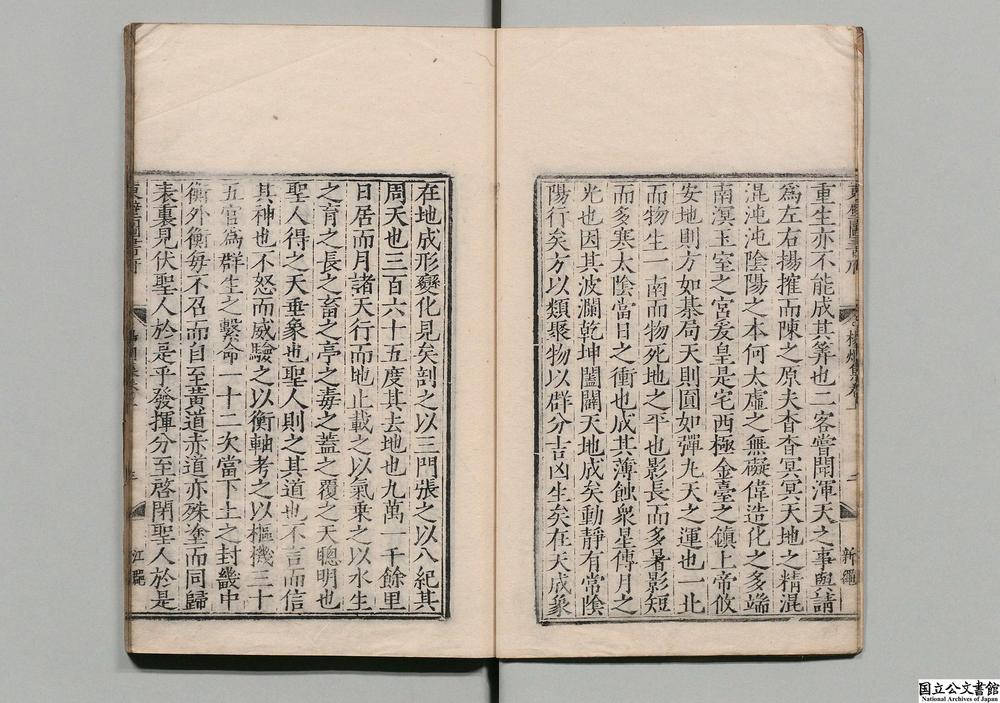 重生亦不能成其筭也二客嘗聞渾天之事與請
為左右揚搉而陳之原夫杳杳冥冥天地之精混
混沌沌陰陽之本何太虛之無礙偉造化之多端
南溟玉室之宮爰皇是宅西極金臺之鎮上帝攸
安地則方如棊局天則圓如彈丸天之運也一北
而物生一南而物死地之平也影長而多暑影短
而多寒太陰當日之衝也成其薄蝕衆星傳月之
光也因其波瀾乾坤闔闢天地成矣動靜有常陰
陽行矣方以類聚物以群分吉凶生矣在天成象
新 鐫
在地成形變化見矣剖之以三門張之以八紀其
周天也三百六十五度其去地也九萬一千餘里
日居而月諸天行而地止載之以氣乗之以水生
之育之長之畜之亭之毒之蓋之覆之天聰明也
聖人得之天垂象也聖人則之其道也不言而信
其神也不怒而威驗之以衡軸考之以樞機三十
五官為群生之繫命一十二次當下土之封畿中
衡外衡每不召而自至黃道赤道亦殊塗而同歸
表裏見伏聖人於是乎發揮分至啓閉聖人於是
東壁圖書府
江
国立公文書館
National Archives of Japan